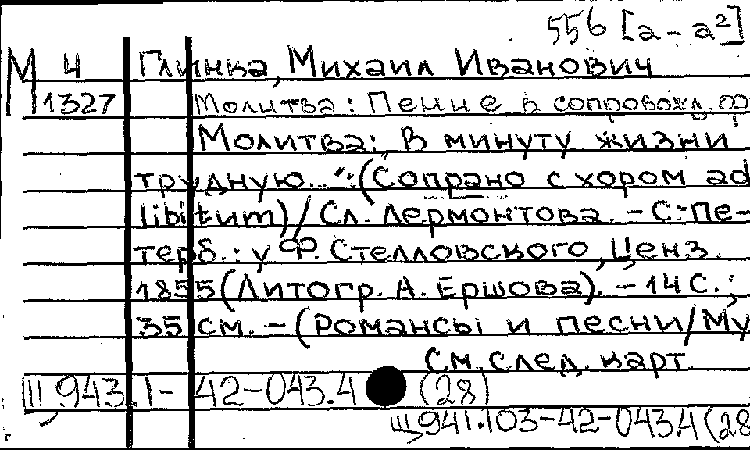 556 [а - а²]
М 4 Глинка, Михаил Иванович
1327 Молитва: Пение в сопровожд. ф
Молитва: „В минуту жизни
трудную...": (Сопрано с хором ad
libitum) / Сл. Лермонтова. - С.-Пе-
терб.: у Ф. Стелловского, Ценз.
1855 (Литогр. А. Ершова). - 14 с.;
35 см. - (Романсы и песни / Му
См. след. карт.
Ш 943.1- 42-043.4 (28)
Ш 941.103-42-043.4 (28